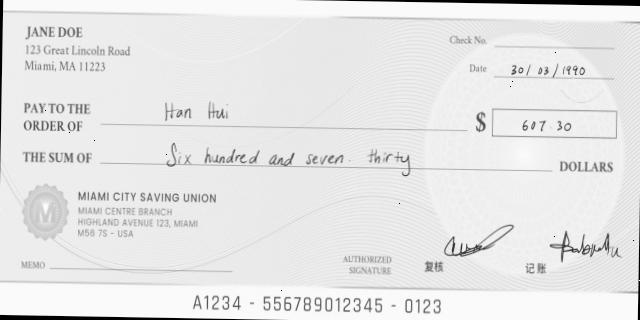 JANE DOE
123 Great Lincoln Road
Miami, MA 11223
Check No.
Date 30/03/1990
PAY TO THE
ORDER OF Han Hui
$ 607.30
THE SUM OF Six hundred and seven. thirty DOLLARS
MIAMI CITY SAVING UNION
MIAMI CENTRE BRANCH
HIGHLAND AVENUE 123, MIAMI
M56 7S - USA
M
MEMO
AUTHORIZED
SIGNATURE
复核
记账
A1234 - 556789012345 - 0123